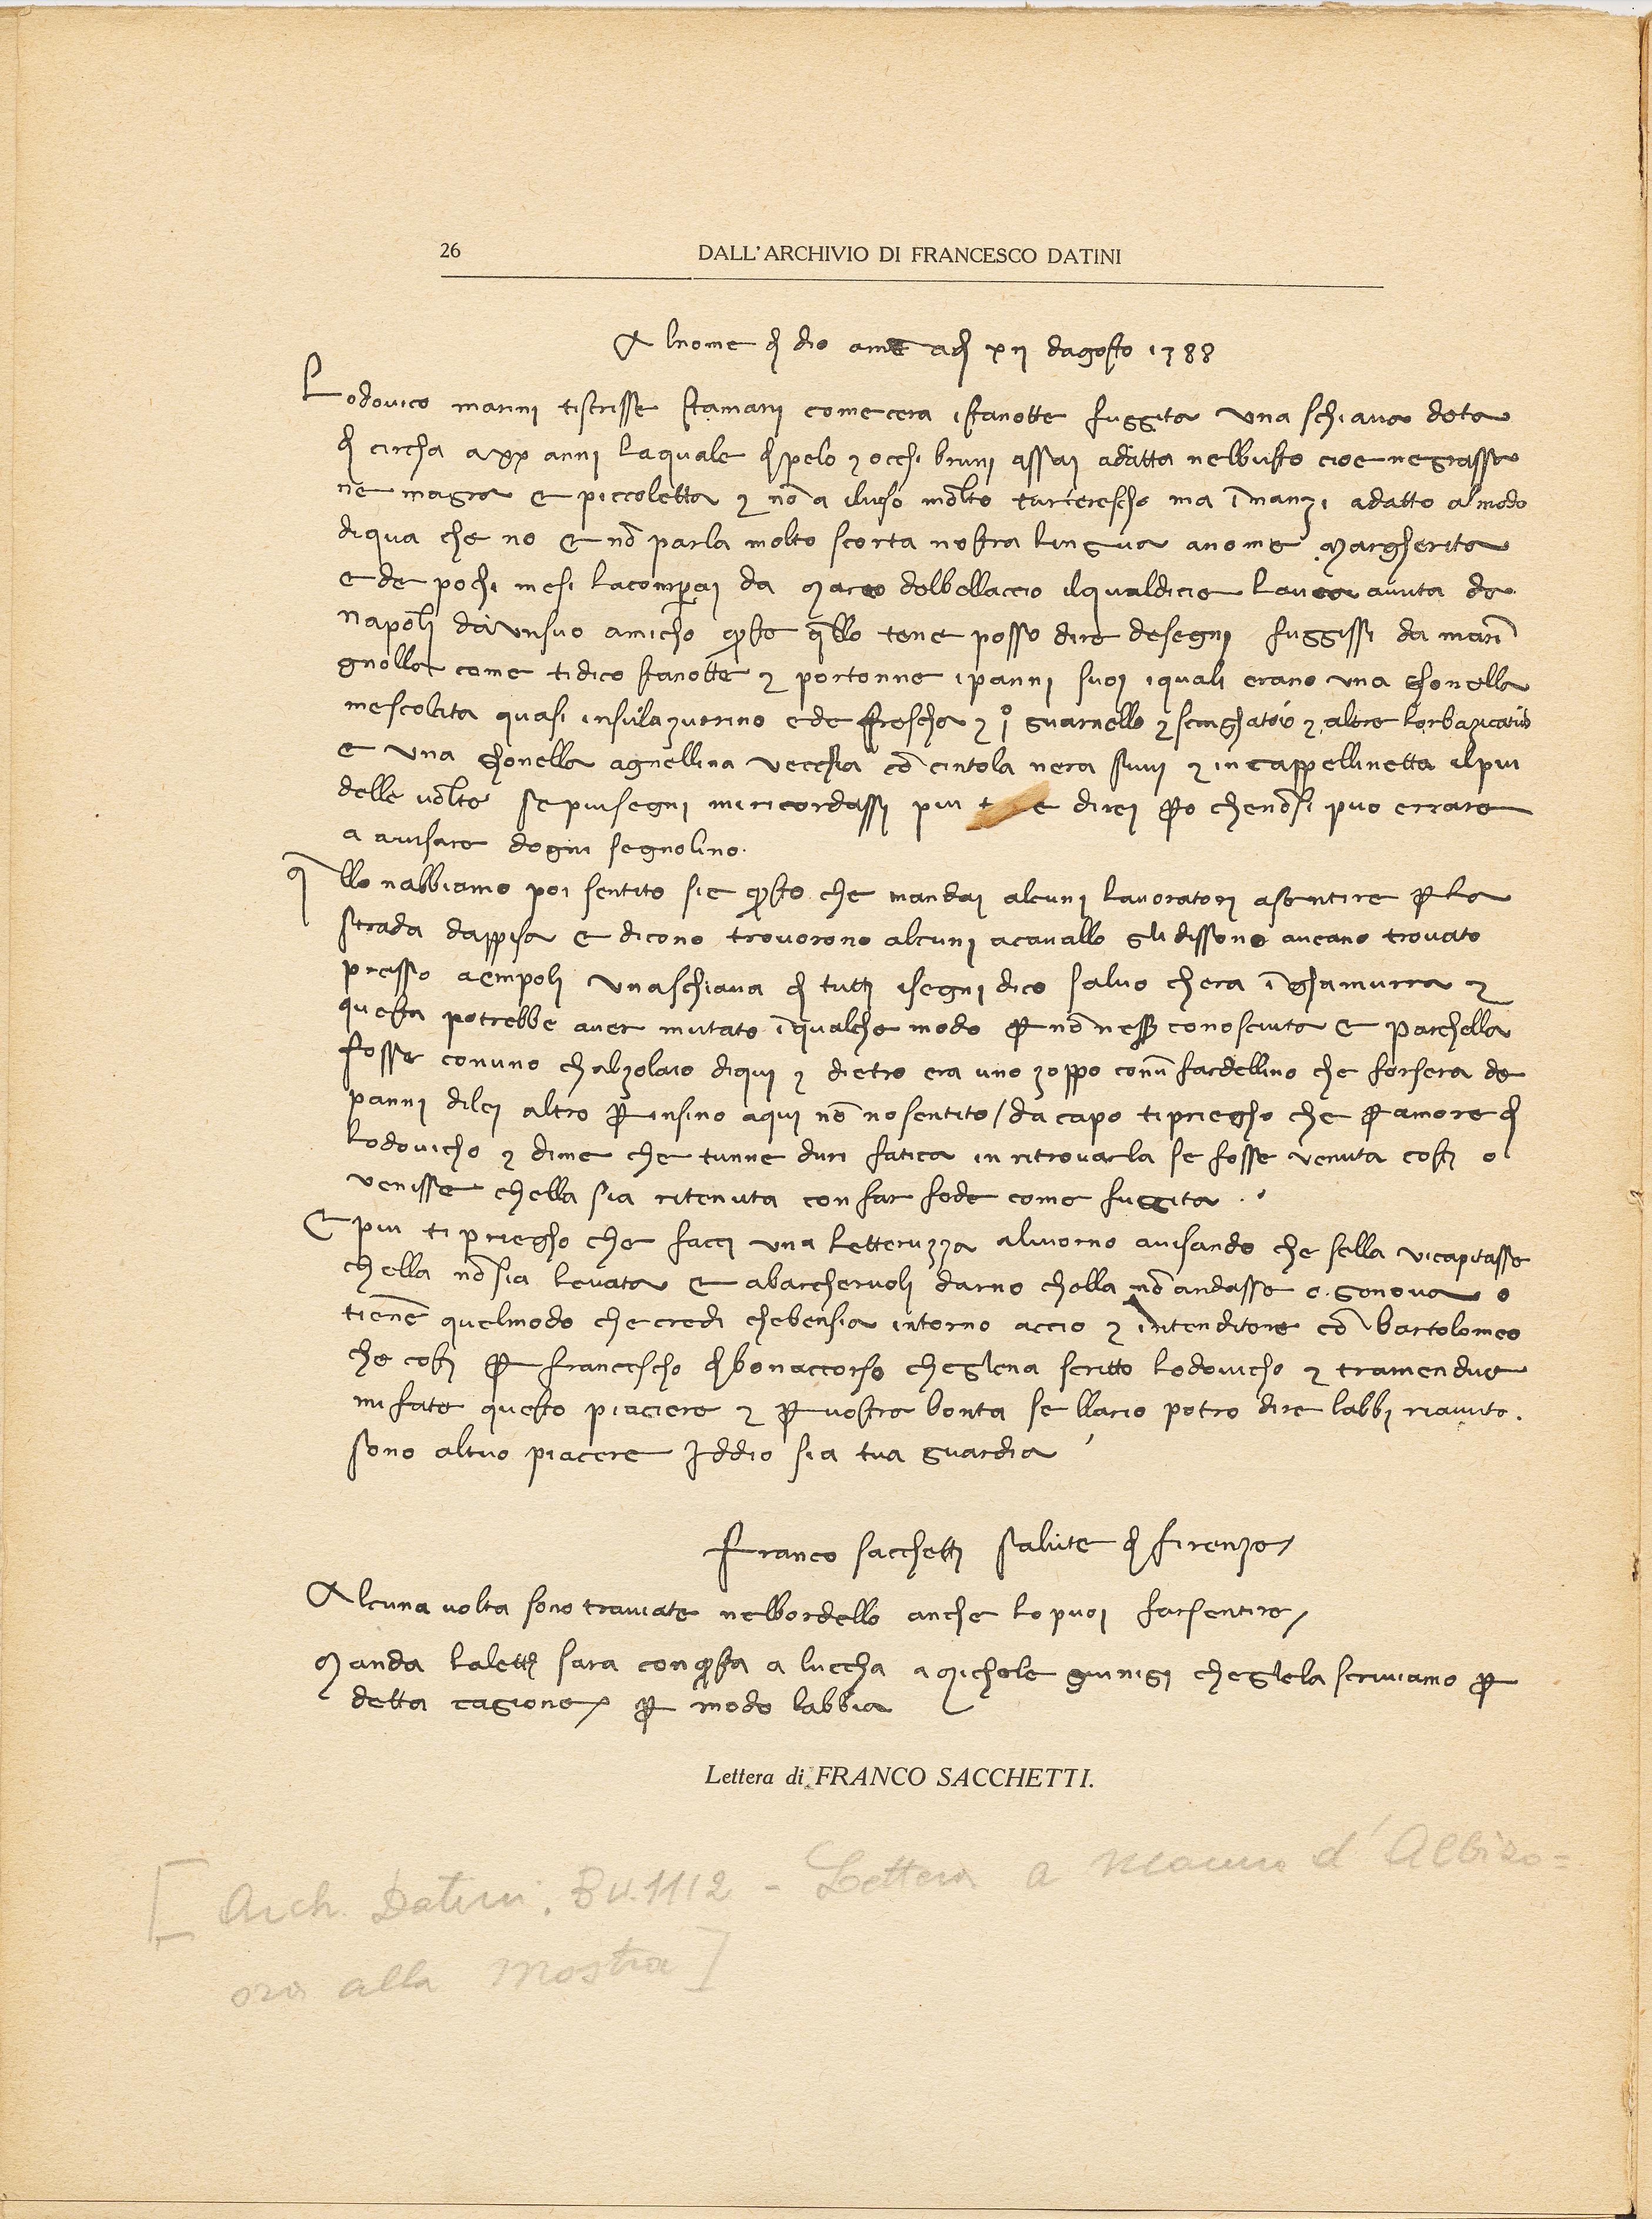 26 DALL'ARCHIVIO DI FRANCESCO DATINI
Alnome d dio amē ad xij dagosto 1388
Lodovico marini tiscrisse stamani comecera istanotte fuggita una schiava deta
d circha axx anni laquale d pelo z occhi bruni assai adatta nelbusto cioe negrassa
ne magra e piccoletta z nō a iluiso molto tarteresco ma īnanzi adatto almodo
diqua che no e nō parla molto scorta nostra lingua anome Margherita
e de pochi mesi lacomperai da Marco delbellaccio ilqualdicie lavea avuta da
Napoli da unsuo amicho qsto qllo tene posso dire desegni fuggissi da mari
gnolla come tidico stanotte z portonne ipanni suoi iquali erano una ghonella
mescolata quasi insulazurrino ede frescha z io guarnello z sciughatoio z altre
e una ghonella agnellina vecchia cō cintola nera suui z in cappellinetta ilpiu
delle volte sepiusegni miricordassi piu direi po chenōsi puo errare
a avisare dogni segnolino.
qllo nabbiamo poi sentito sie qsto che mandai alcuni lavoratori asentire p la
strada dappisa e dicono trovorono alcuni acavallo gli dissono aveano trovato
presso aempoli unaschiava d tutti isegni dico salvo chera ī ghamurra z
questa potrebbe aver mutato īqualche modo p nō ness conosciuta e parchella
fosse conuno chalzolaio diqui z dietro era uno zoppo conū fardellino che forsera de
panni dilei altro p insino aqui nō nosentito / da capo tipriegho che p amore d
lodovicho z dime che tunne duri fatica in ritrovarla se fosse venuta costi o
venisse chella sia ritenuta con far fede come fuggita .
E piu ti priegho che facci una letteruzza alivorno avisando che sella vicapitasse
chella nō sia levata e abarcheruoli darno chella nō andasse a genova o
tienē quelmodo checredi chebensia intorno accio z intenditene cō bartolomeo
che costi p francescho d bonaccorso cheglena scritto lodovicho z tramendue
mi fate questo piacere z p vostra bonta se llario potro dire labbi riavuto.
sono altuo piacere Iddio sia tua guardia
franco sacchetti salute d firenze /
Alcuna volta sono traviate nelbordello anche lo puoi farsentire /
Manda lalettᵃ sara conqsta a luccha a Michele guinigi cheglela scriviamo p
detta cagione / p modo labbia
Lettera di FRANCO SACCHETTI.
[Arch. Datini. Bu. 1112 - Lettera a Manno d'Albizo=
ora alla Mostra]